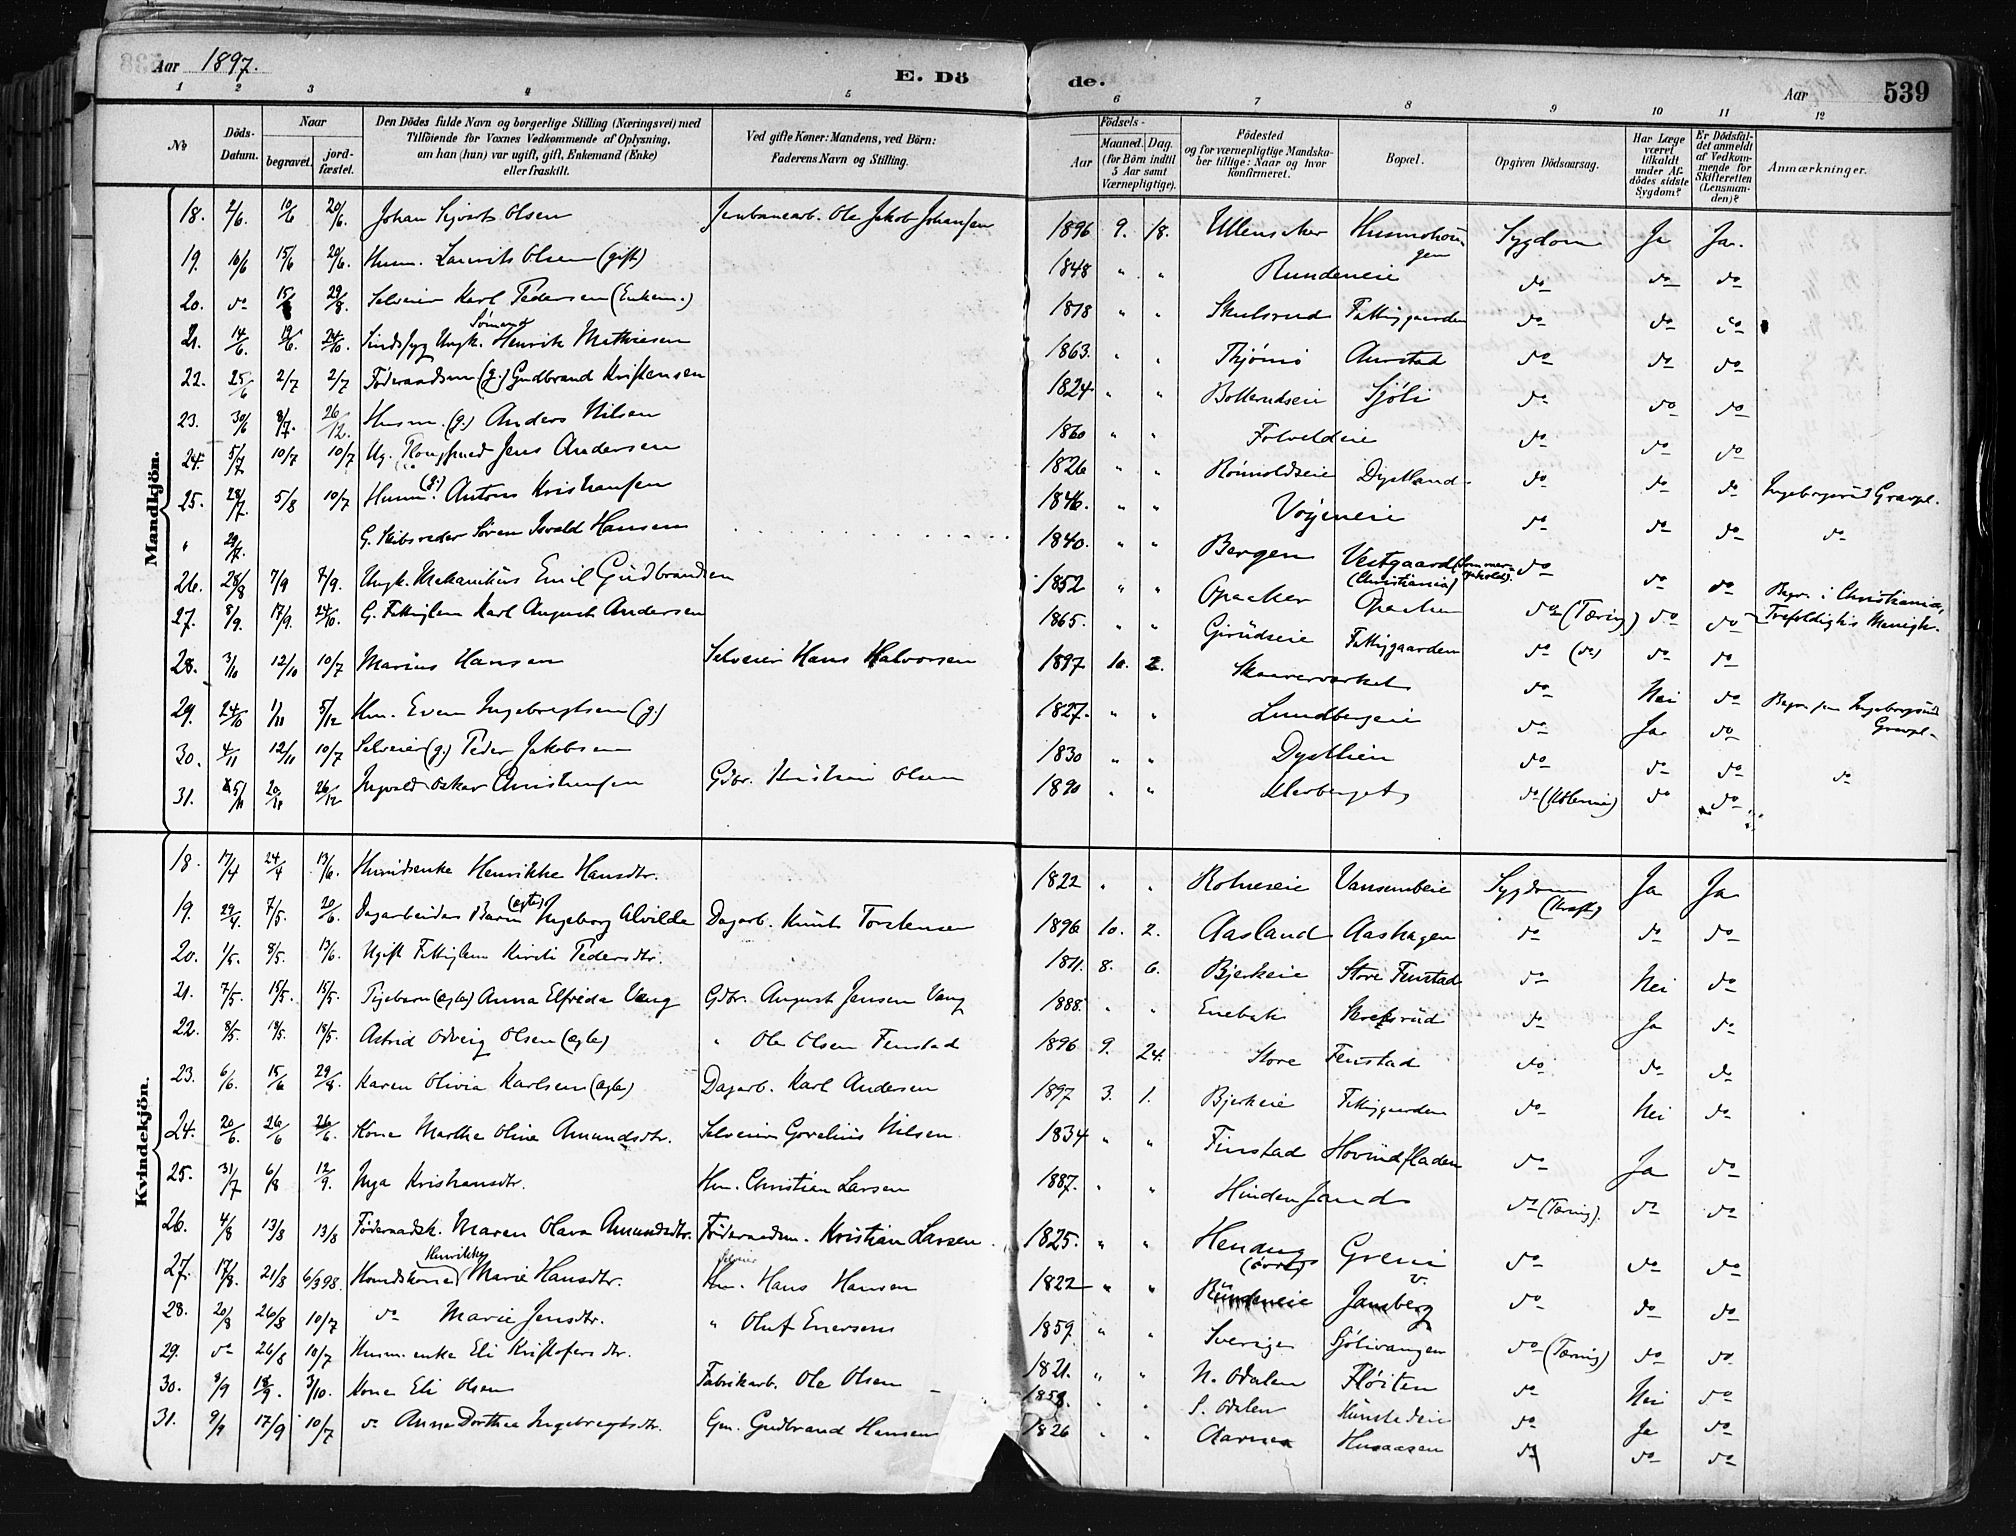 Aar 1897. E. Dö de. Aar 539
1 2 3 4 5 6 7 8 9 10 11 12
No
Döds-Datum.
Naar begravet. jordfæstet.
Den Dödes fulde Navn og borgerlige Stilling (Næringsvei) med Tilföiende for Voxnes Vedkommende af Oplysning, om han (hun) var ugift, gift, Enkemand (Enke) eller fraskilt.
Ved gifte Koner: Mandens, ved Börn: Faderens Navn og Stilling.
Födsels- Aar Maaned. Dag. (for Börn indtil 5 Aar samt Værnepligtige).
Födested og for værnepligtige Mandskaber tillige: Naar og hvor konfirmeret.
Bopæl.
Opgiven Dödsaarsag.
Har Læge været tilkaldt under Afdödes sidste Sygdom?
Er Dödsfaldet anmeldt af Vedkommende for Skifteretten (Lensmanden)?
Anmærkninger.
Mandkjön.
18. 2/6. 10/6 20/6. Johan Sigvart Olsen Jernbanearb. Ole Jakob Johansen 1896 9. 18. Ullensaker Sygdom Ja Ja.
19. 10/6 15/6 20/6. Husm. Laurits Olsen (gift) 1848 " " Rundeneie do do do
20. do 15/ 29/8. Selveier Karl Pedersen (Enkem.) 1818 " " Skulsrud Fattiggaarden do do do
21. 14/6. 19/6. 24/10. Sindssyg Ungk. Sömand Henrik Mathiesen 1863. " " Thjömö Aurstad do do do
22. 25/6 2/7 2/7 Föderaadsm (g.) Gudbrand Kristensen 1824 " " Botterudseie Sjöli do do do
23. 30/6 8/7. 26/12. Husm. (g.) Anders Nilsen 1860 " " do do do
24. 5/7 10/7 10/7 Ug. Jens Andersen 1826 " " do do do
25. 28/7. 5/8 10/7 Husm (g.) Anton Kristiansen 1846. " " Vöyeneie do do do
" 29/7. G. Skibsreder Sören Isvald Hansen 1840. " " Bergen Vestgaard (Christiania) do do do
26. 28/8 7/9 7/9. Ungk. Mekanikus Emil Gudbrandsen 1852 " " Opaker Opaker do (Tæring) do do Begr. i Christiania, Trefoldigh.s Menigh.
27. 8/9. 17/9. 24/10. G. Fattiglem Karl August Andersen 1865. " " Girudseie Fattiggaarden do (do) do do
28. 3/10 12/10 10/7 Marius Hansen Selveier Hans Halvorsen 1897 10. 2. do Nei do
29. 24/10 1/11 5/12 Hm. Even Ingebregtsen (g.) 1827. " " Lundbergeie do Ja do
30. 4/11 12/11 10/7 Selveier (g.) Peder Jakobsen 1830 " " do do do do
31. 5/11 20/11 26/12 Ingvald Oskar Christiansen Gdbr. Kristian Olsen 1890 " " do do do
Kvindekjön.
18. 17/4 24/4 13/6. Henrikke Hansdtr. 1822 " " Sygdom (Kræft) Ja Ja
19. 29/4. 7/5. 20/6. Dagarbeider Barn (ægte) Ingeborg Alvilde Dagarb. Knut Torstensen 1896 10. 2. Aasland Aashagen do do do
20. 1/5. 8/5. 13/6. Ugift Fattiglem Kirsti Pedersdtr. 1811. 8. 6. Bjerkeie Store Fenstad do Nei do
21. 7/5. 15/5. 15/5. Pigebarn (ægte) Anna Elfrida Vang Gdbr. August Jensen Vang 1888. " " Enebak do Ja do
22. 8/5. 18/5. 18/5. Astrid Odveig Olsen (ægte) " Ole Olsen Fenstad 1896 9. 24. Store Fenstad do do do
23. 6/6. 15/6 29/8. Karen Olivia Karlsen (ægte) Dagarb. Karl Andersen 1897 3. 1. Bjerkeie Fattiggaarden do Nei do
24. 20/6. 26/6 26/6. Kone Marthe Oline Amundsdtr. Selveier Gorelius Nilsen 1834 " " Finstad do Ja do
25. 31/7 6/8 12/9. Inga Kristiansdtr. Hm. Christian Larsen 1887. " " do (Tæring). do do
26. 4/8 13/8 13/8 Föderaadsk. Maren Olava Amundsdtr. Föderaadsm. Kristian Larsen 1825. " " do do do
27. 17/8. 21/8 6/3 98. Henrikke Marie Hansdtr. Selveier Hm. Hans Hansen 1822 " " Rundeneie do do do
28. 20/8 26/8 10/7 do Marie Jensdtr. " Oluf Enersen 1859. " " Sverige Sjölivangen do (Tæring) do do
29. do 26/8 10/7 Husm. enke Eli Kristofersdtr. 1821. " " N. Odalen Flöiten do Nei do
30. 8/9 18/9. 3/10. Kone Eli Olsen Fabrikarb. Ole Olsen 1858. " " S. Odalen do Ja do
31. 9/9 17/9 10/7 do Anne Dorthea Ingebregtsdtr. Gm. Gudbrand Hansen 1826 " " Aarnes Husaasen do do do